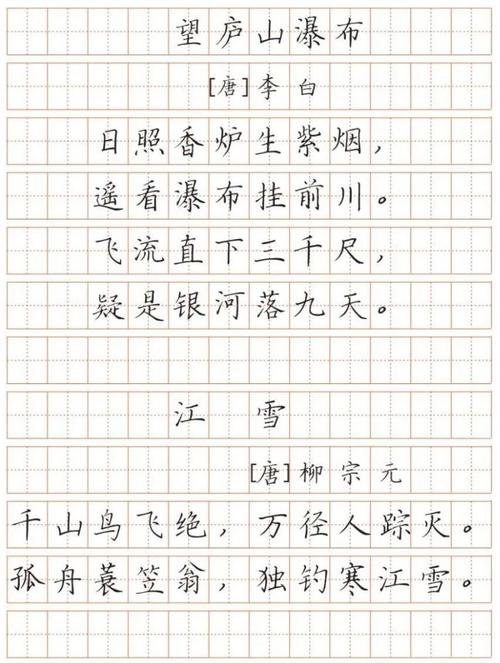 望庐山瀑布
[唐]李白
日照香炉生紫烟，
遥看瀑布挂前川。
飞流直下三千尺，
疑是银河落九天。
江雪
[唐]柳宗元
千山鸟飞绝，万径人踪灭。
孤舟蓑笠翁，独钓寒江雪。